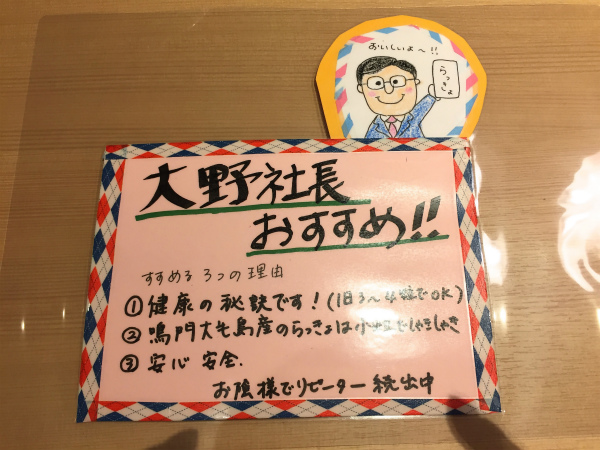 おいしいよ～!!
らっきょ
大野社長
おすすめ!!
すすめる 3つの理由
① 健康の秘訣です！(1日3～4粒でOK)
② 鳴門大毛島産のらっきょは小粒でしゃきしゃき
③ 安心 安全.
お陰様でリピーター続出中